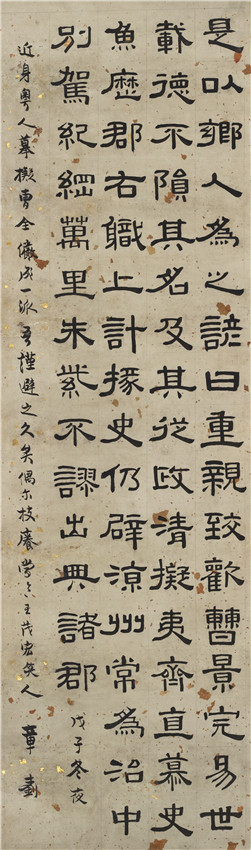 是以鄉人為之諺曰重親致歡曹景完易世
載德不隕其名及其從政清擬夷齊直慕史
魚歷郡右職上計掾史仍辟涼州常為治中
別駕紀綱萬里朱紫不謬出典諸郡 戊子冬夜
近身粵人摹擬曹全儼成一派吾謹避之久矣偶尔枝癢王茂宏笑人 章